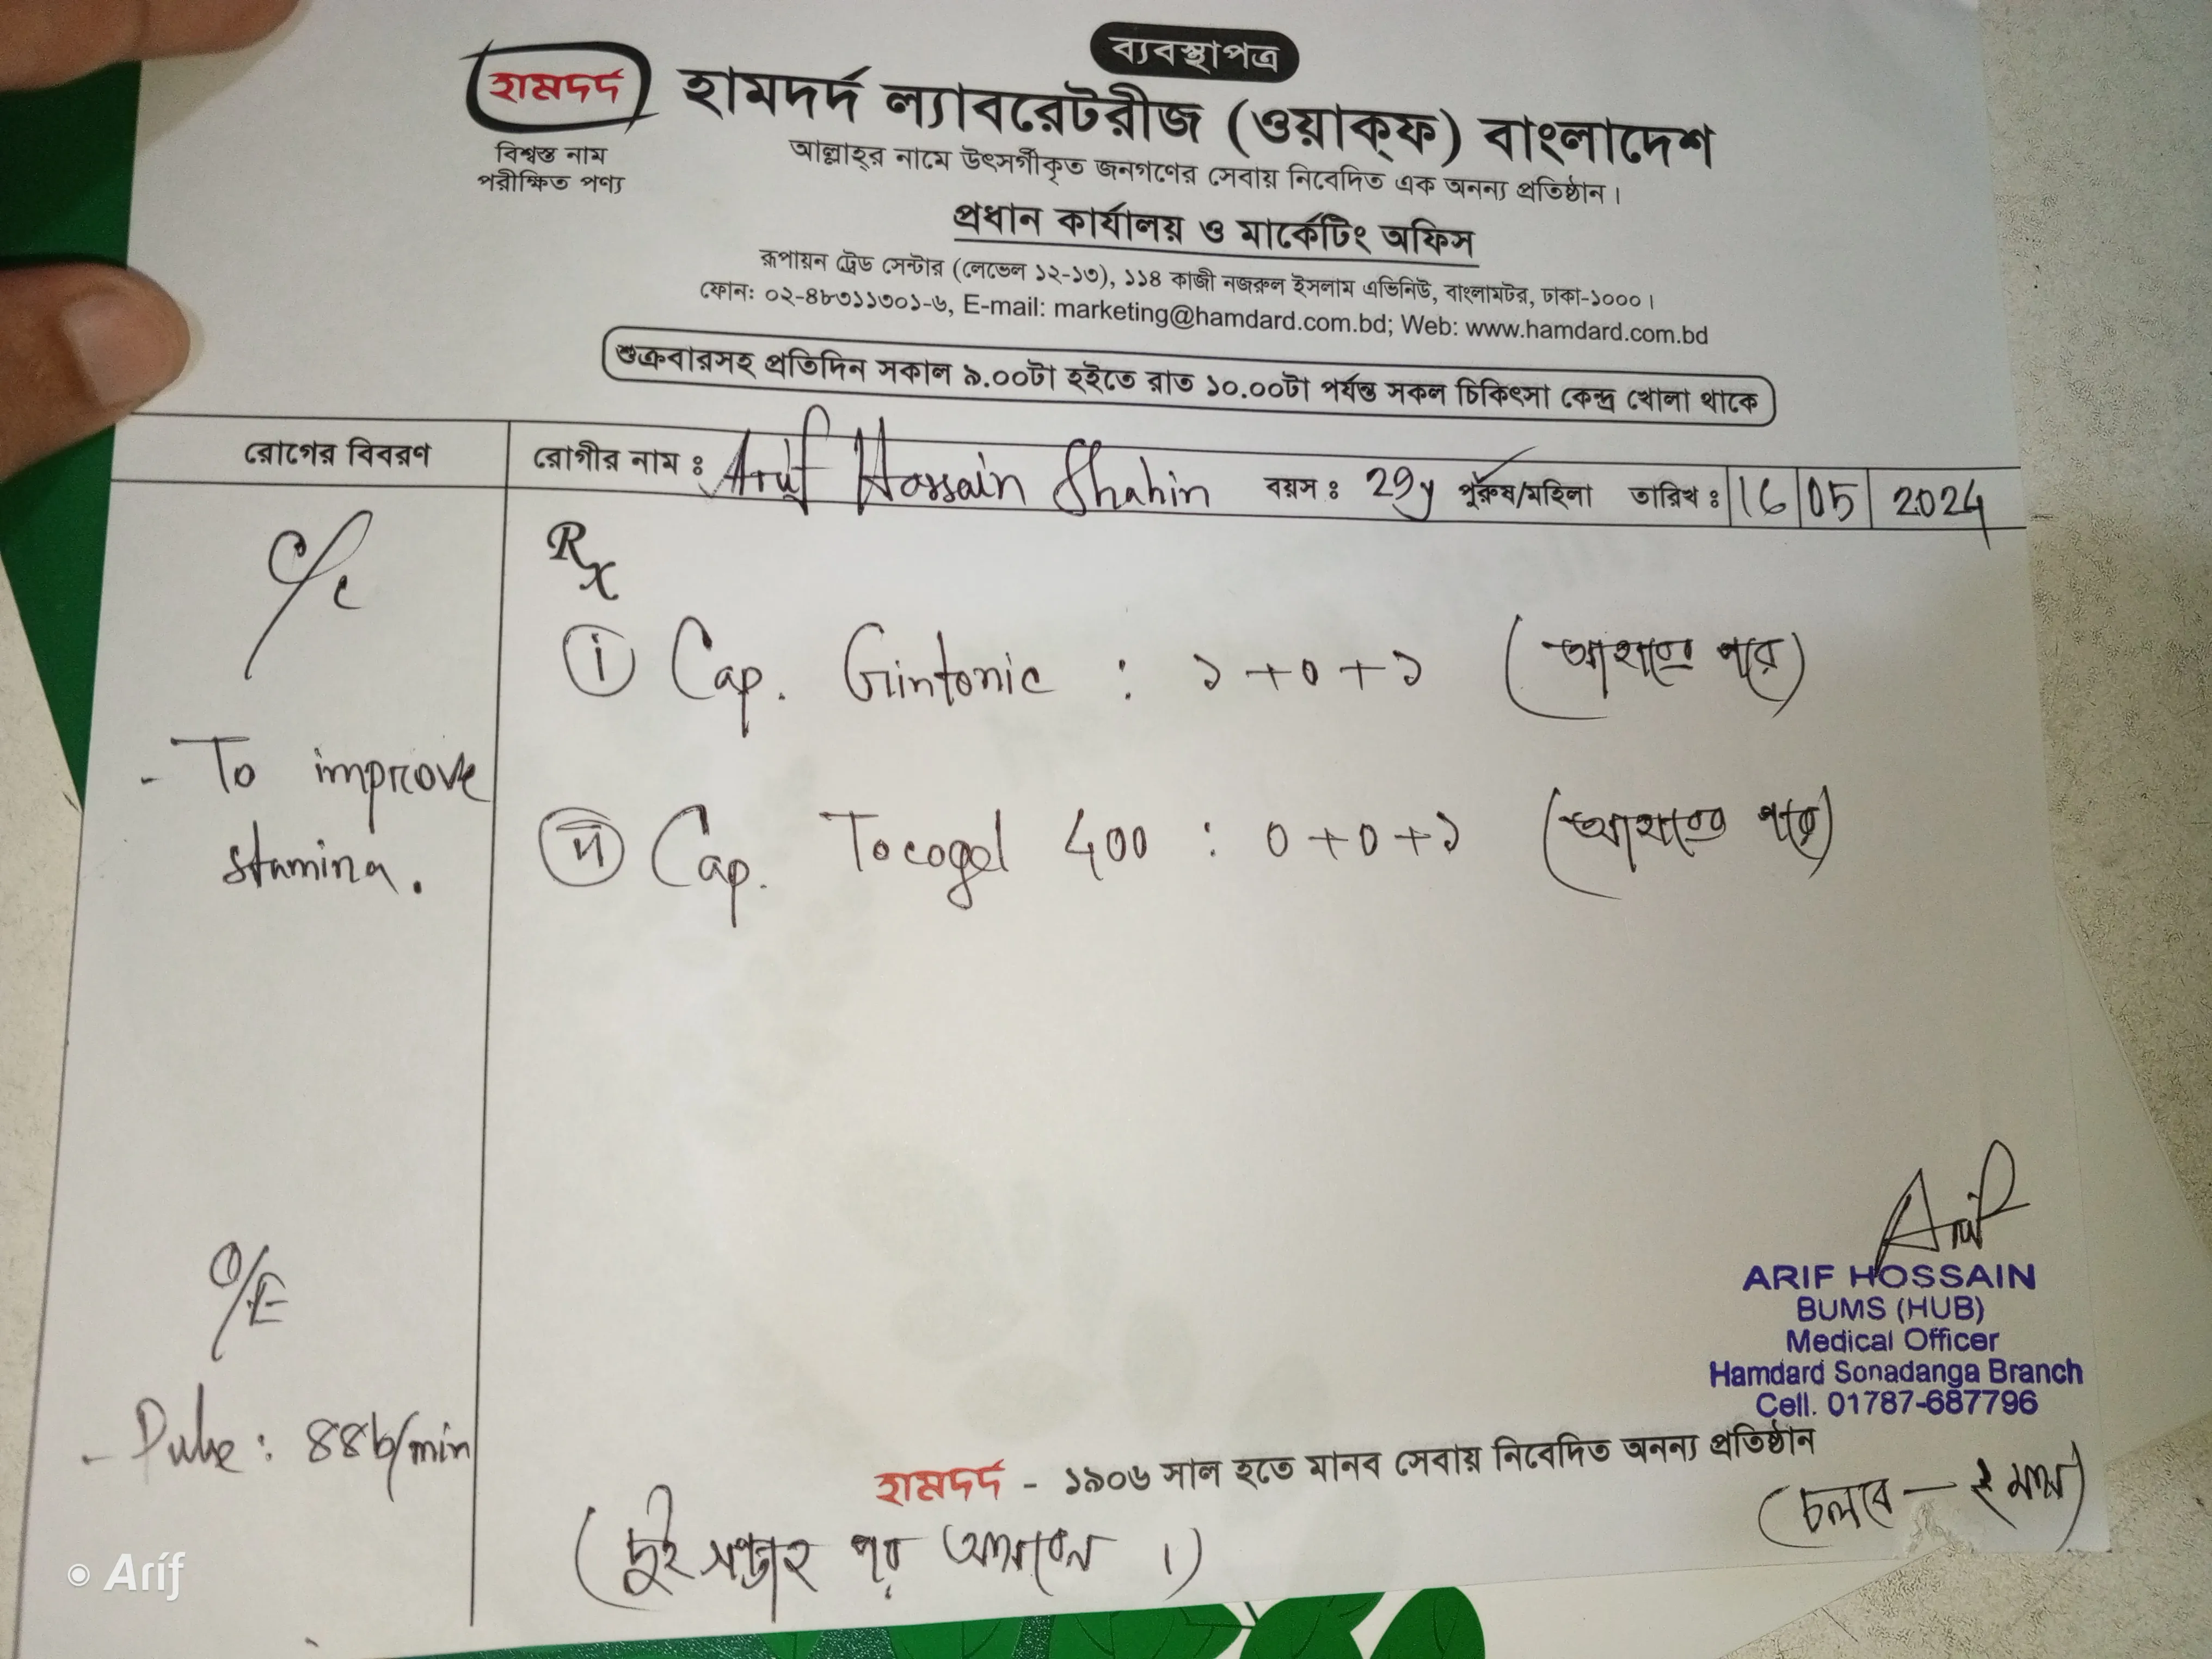 ব্যবস্থাপত্র
হামদর্দ
বিশ্বস্ত নাম
পরীক্ষিত পণ্য
হামদর্দ ল্যাবরেটরীজ (ওয়াক্‌ফ) বাংলাদেশ
আল্লাহ্‌র নামে উৎসর্গীকৃত জনগণের সেবায় নিবেদিত এক অনন্য প্রতিষ্ঠান।
প্রধান কার্যালয় ও মার্কেটিং অফিস
রূপায়ন ট্রেড সেন্টার (লেভেল ১২-১৩), ১১৪ কাজী নজরুল ইসলাম এভিনিউ, বাংলামটর, ঢাকা-১০০০।
ফোন: ০২-৪৮৩১১৩০১-৬, E-mail: marketing@hamdard.com.bd; Web: www.hamdard.com.bd
শুক্রবারসহ প্রতিদিন সকাল ৯.০০টা হইতে রাত ১০.০০টা পর্যন্ত সকল চিকিৎসা কেন্দ্র খোলা থাকে
রোগের বিবরণ
রোগীর নাম : Arif Hossain Shahin বয়স : 29y পুরুষ/মহিলা তারিখ : 16 05 2024
C/C
- To improve
stamina.
O/E
- Pulse : 88b/min
Rx
(i) Cap. Gintonic : ১+০+১ (আহারের পরে)
(ii) Cap. Tocogel 400 : ০+০+১ (আহারের পরে)
Arif
ARIF HOSSAIN
BUMS (HUB)
Medical Officer
Hamdard Sonadanga Branch
Cell. 01787-687796
হামদর্দ - ১৯০৬ সাল হতে মানব সেবায় নিবেদিত অনন্য প্রতিষ্ঠান
(চলবে — ২ মাস)
(দুই সপ্তাহ পর আসবেন।)
Arif